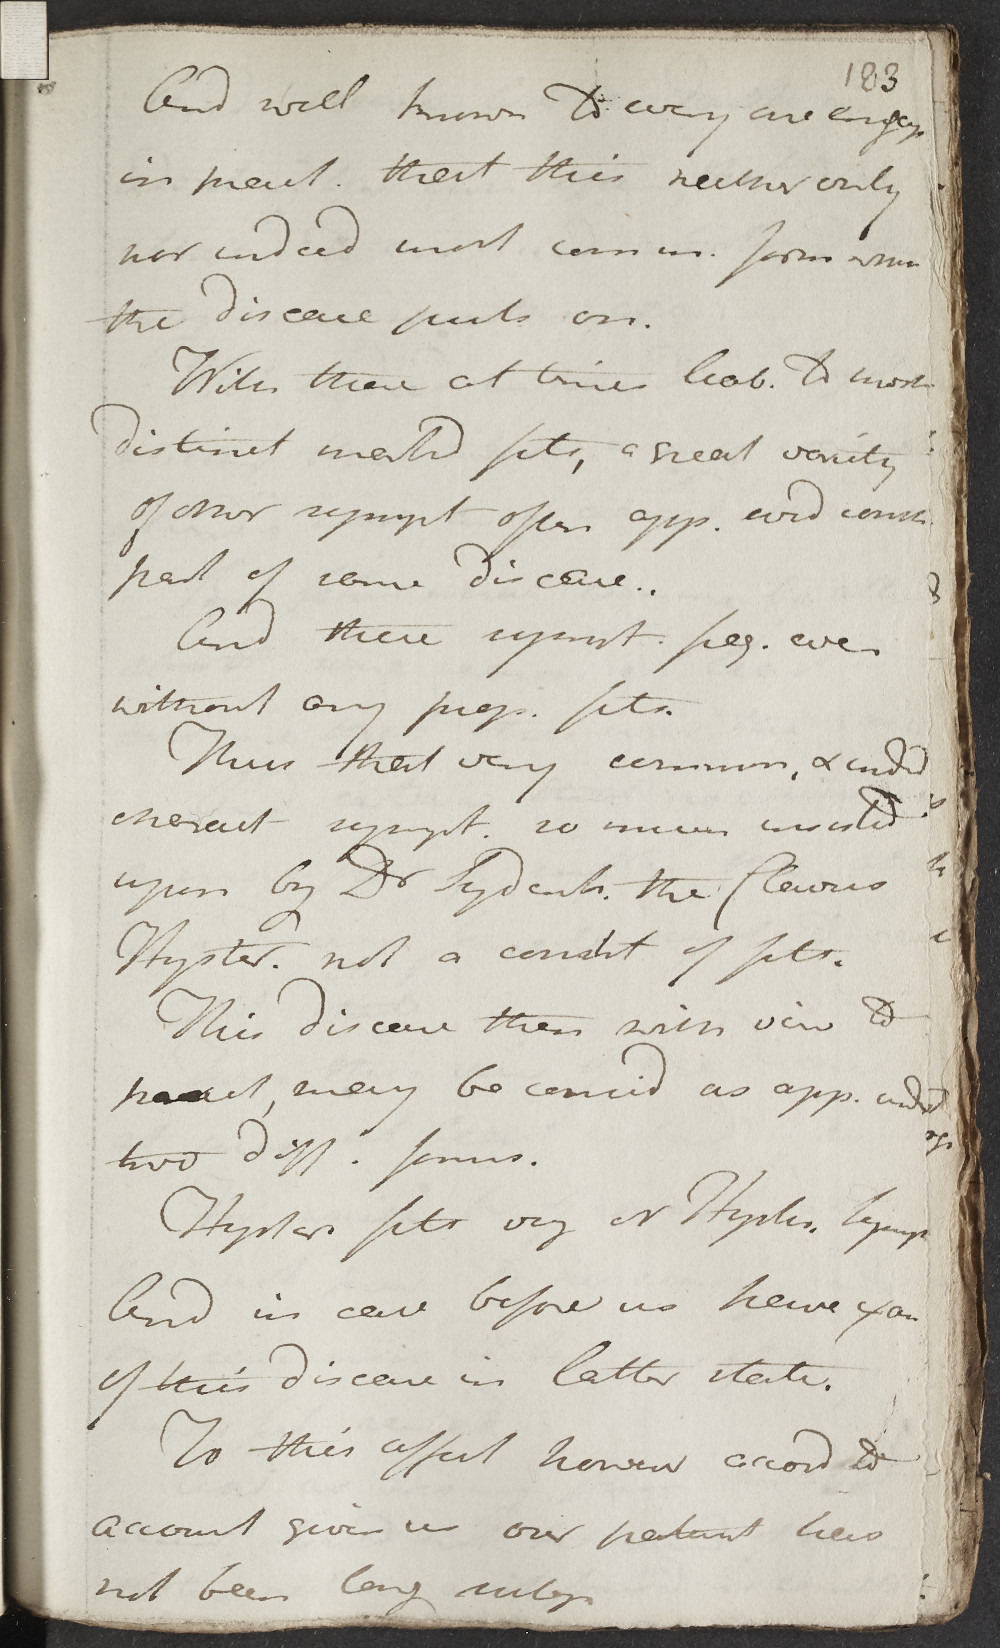 183
And well known to every one engag
in pract. that this neither only
nor indeed most comm. form whh
the disease puts on.
With those at times liab. to most
distinct markd fits, a great variety
of other sympt often app. and const.
part of same disease..
And these sympt. freq. even
without any prop. fits.
Thus that very common, & indd
charact sympt. so much insistd
upon by Dr Sydenh. the Clavus
Hyster. not a const of fits.
This disease then with view to
pract, may be consid as app. under
two diff. forms.
Hyster fits viz or Hyster. Symp
And in case before us have exam
of this disease in latter state.
To this affect howevr accord to
account given us our patient has
not been long subj